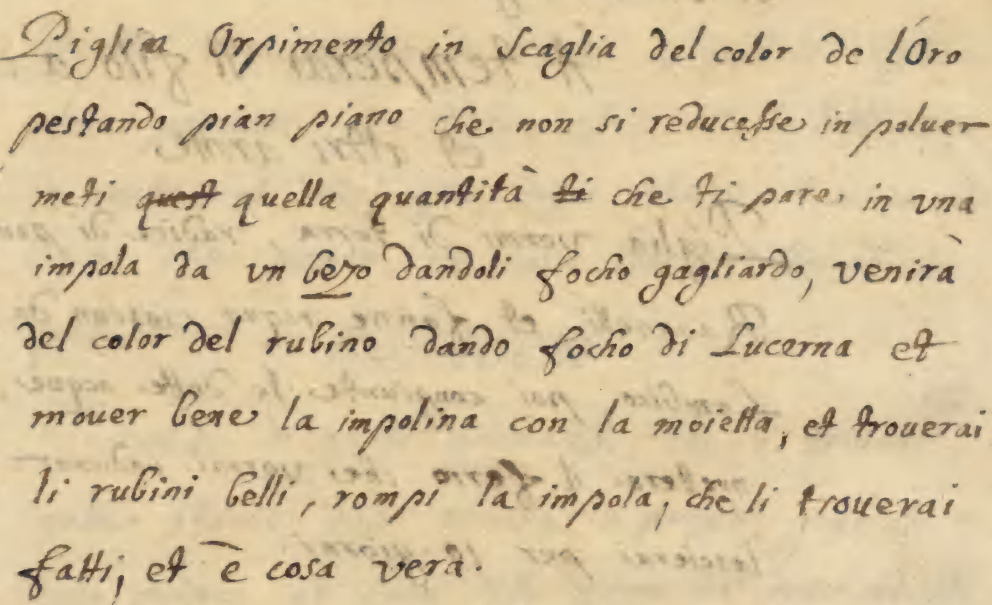 Piglia Orpimento in scaglia del color de l'Oro
pestando pian piano che non si reducesse in poluer
meti quest quella quantità ti che ti pare in vna
impola da vn bezo dandoli focho gagliardo, venirà
del color del rubino dando focho di Lucerna et
mouer bene la impolina con la moietta, et trouerai
li rubini belli, rompi la impola, che li trouerai
fatti, et è cosa vera.